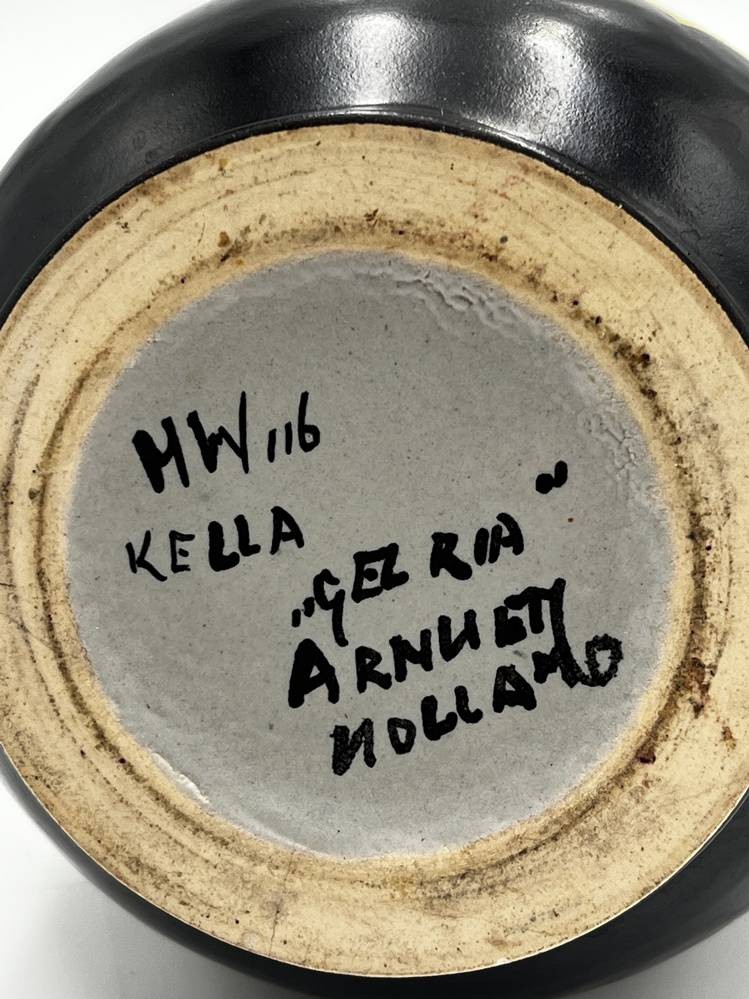 MW 116
KELLA
„GEZ RIA"
ARNHEM
HOLLAND